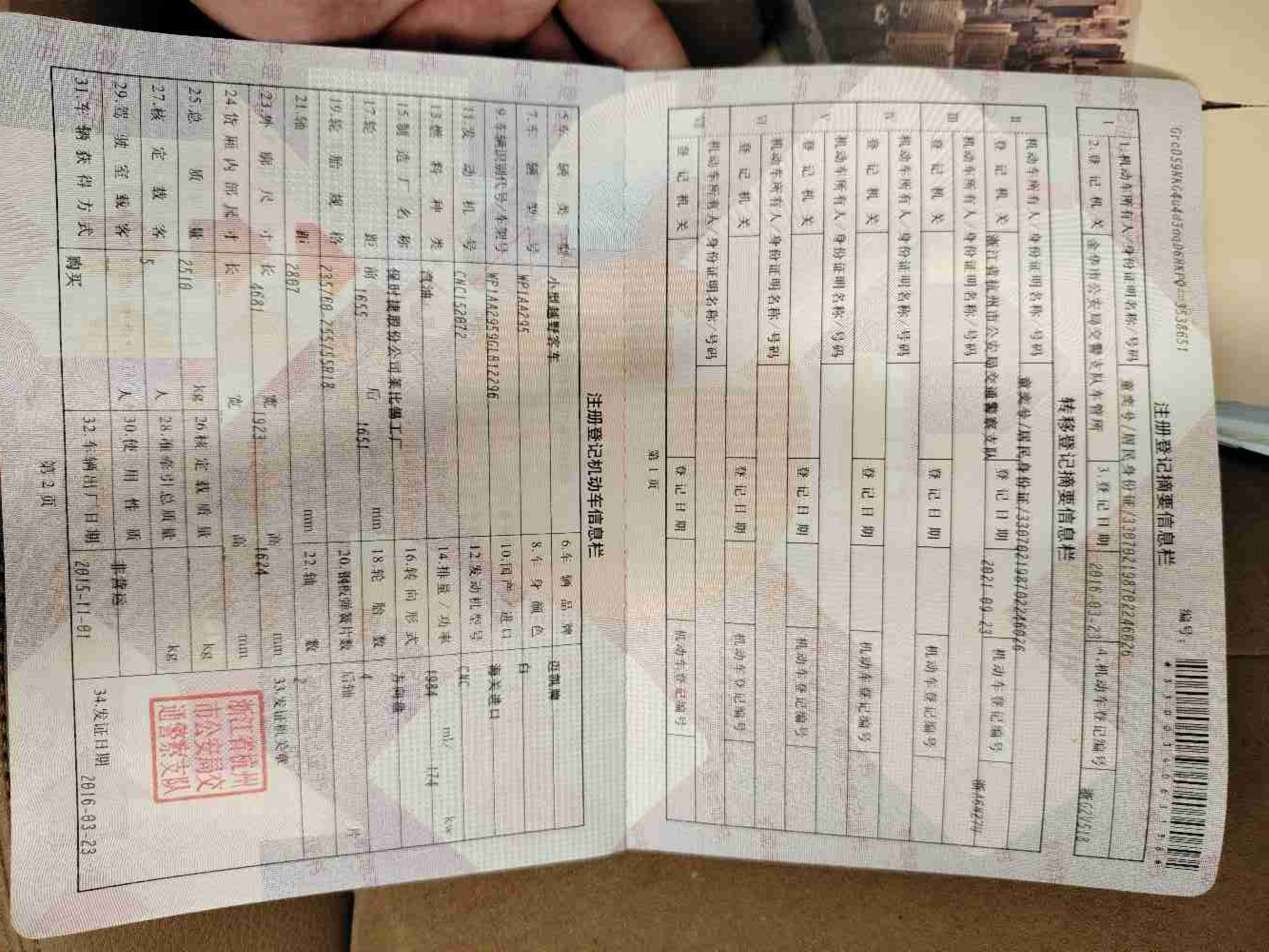 注册登记摘要信息栏
编号:
I
1.机动车所有人/身份证明名称/号码
2.登记机关 金华市公安局交警支队车管所 3.登记日期 2016-03-23 4.机动车登记编号
转移登记摘要信息栏
II
机动车所有人/身份证明名称/号码
登记机关 浙江省杭州市公安局交通警察支队 登记日期 2021-09-23 机动车登记编号
III
机动车所有人/身份证明名称/号码
登记机关 登记日期 机动车登记编号
IV
机动车所有人/身份证明名称/号码
登记机关 登记日期 机动车登记编号
V
机动车所有人/身份证明名称/号码
登记机关 登记日期 机动车登记编号
VI
机动车所有人/身份证明名称/号码
登记机关 登记日期 机动车登记编号
VII
机动车所有人/身份证明名称/号码
登记机关 登记日期 机动车登记编号
第1页
注册登记机动车信息栏
5.车辆类型 小型越野客车 6.车辆品牌
7.车辆型号 WP1AA295 8.车身颜色 白
9.车辆识别代号/车架号 WP1AA2959GLB12296 10.国产/进口 海关进口
11.发动机号 CNC152872 12.发动机型号 CNC
13.燃料种类 汽油 14.排量/功率 1984 ml/ 174 kw
15.制造厂名称 保时捷股份公司莱比锡工厂 16.转向形式 方向盘
17.轮距 前 1655 后 1651 mm 18.轮胎数 4
19.轮胎规格 235/60,255/55R18 20.钢板弹簧片数 后轴 片
21.轴距 2807 mm 22.轴数 2
23.外廓尺寸 长 4681 宽 1923 高 1624 mm 33.发证机关章
24.货厢内部尺寸 长 宽 高 mm
浙江省杭州
市公安局交
通警察支队
25.总质量 2510 kg 26.核定载质量 kg
27.核定载客 5 人 28.准牵引总质量 kg
29.驾驶室载客 人 30.使用性质 非营运
31.车辆获得方式 购买 32.车辆出厂日期 2015-11-01 34.发证日期 2016-03-23
第2页